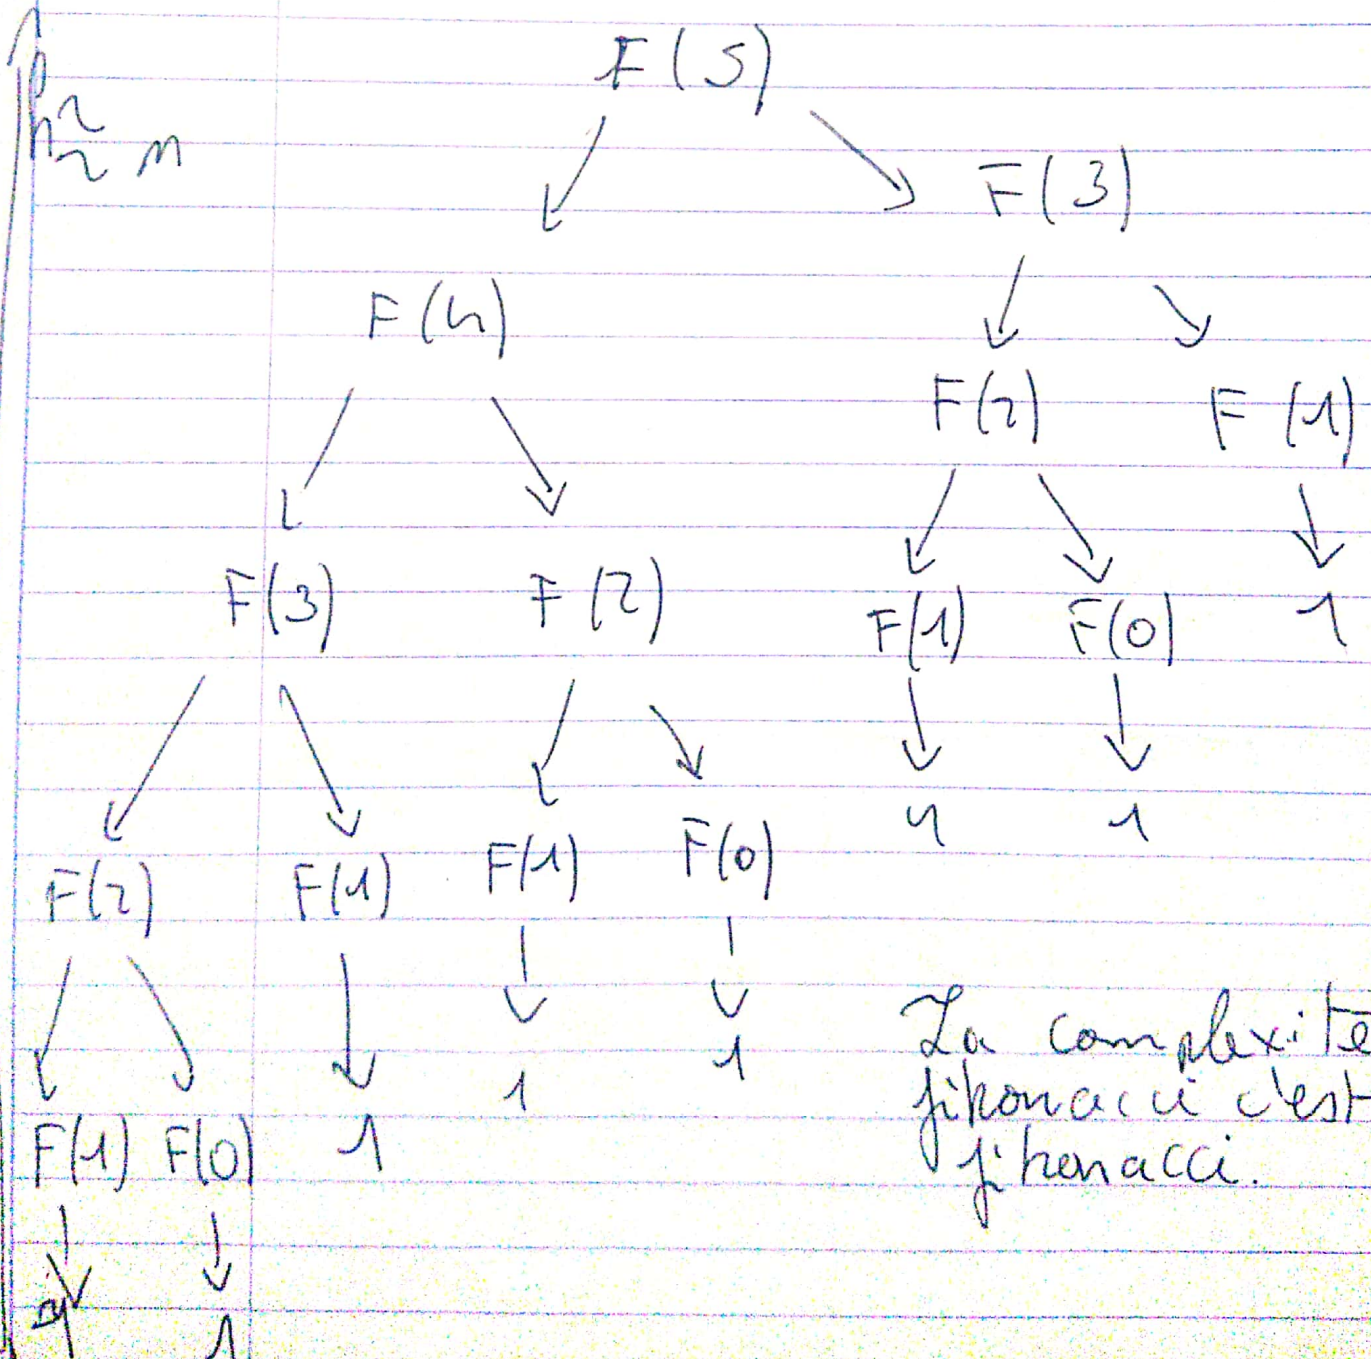 F(5)
F(3)
F(4)
F(2) F(1)
F(3) F(2) F(1) F(0) 1
1 1
F(2) F(1) F(1) F(0)
1 1
F(1) F(0) 1
1 1
La complexité
fibonacci c'est
fibonacci.